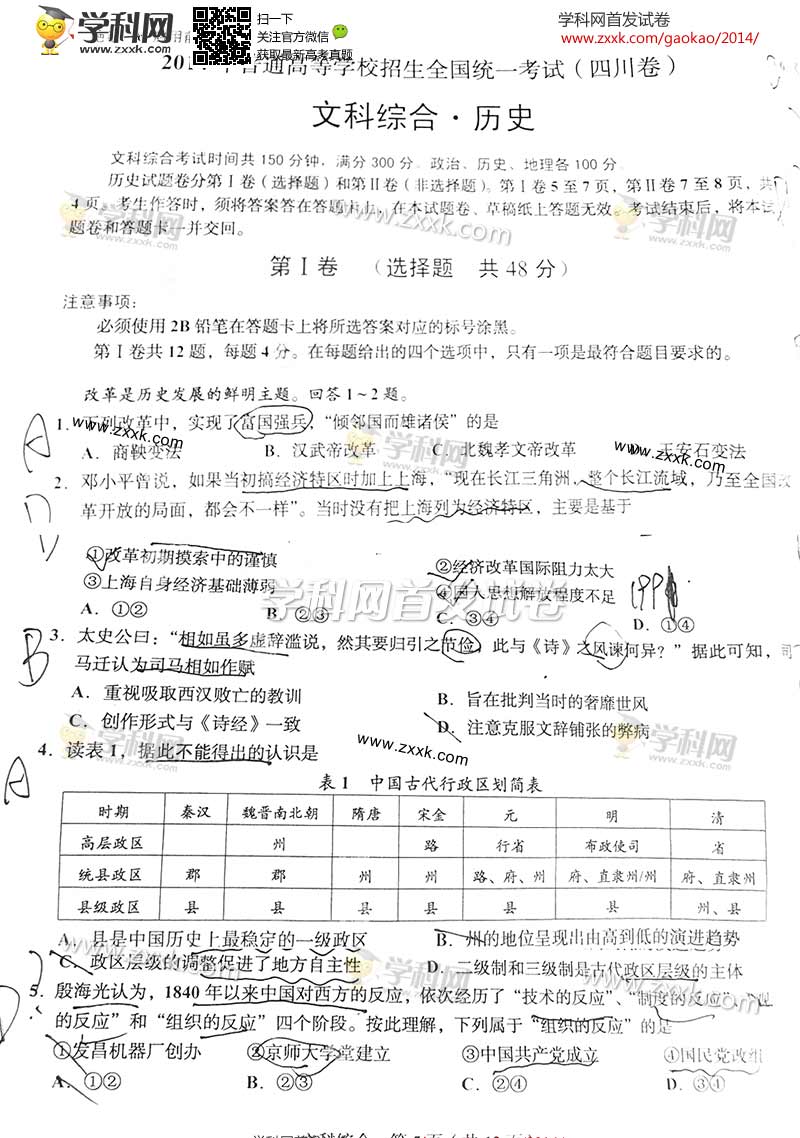 学科网
www.zxxk.com
扫一下
关注官方微信
获取最新高考真题
学科网首发试卷
www.zxxk.com/gaokao/2014/
普通高等学校招生全国统一考试(四川卷)
文科综合·历史
文科综合考试时间共150分钟,满分300分。政治、历史、地理各100分。
历史试题卷分第Ⅰ卷(选择题)和第Ⅱ卷(非选择题)。第Ⅰ卷5至7页,第Ⅱ卷7至8页,共
4页。考生作答时,须将答案答在答题卡上,在本试题卷、草稿纸上答题无效。考试结束后,将本试
题卷和答题卡一并交回。
第Ⅰ卷 (选择题 共48分)
注意事项:
必须使用2B铅笔在答题卡上将所选答案对应的标号涂黑。
第Ⅰ卷共12题,每题4分。在每题给出的四个选项中,只有一项是最符合题目要求的。
改革是历史发展的鲜明主题。回答1~2题。
A 1.下列改革中,实现了富国强兵,“倾邻国而雄诸侯”的是
A.商鞅变法 B.汉武帝改革 C.北魏孝文帝改革 王安石变法
D 2.邓小平曾说,如果当初搞经济特区时加上上海,“现在长江三角洲,整个长江流域,乃至全国改
革开放的局面,都会不一样”。当时没有把上海列为经济特区,主要是基于
①改革初期摸索中的谨慎 ②经济改革国际阻力太大
③上海自身经济基础薄弱 ④国人思想解放程度不足 199
A.①② B.②③ C.③④ D.①④
B 3.太史公曰:“相如虽多虚辞滥说,然其要归引之节俭,此与《诗》之风谏何异?”据此可知,司
马迁认为司马相如作赋
A.重视吸取西汉败亡的教训 B.旨在批判当时的奢靡世风
C.创作形式与《诗经》一致 D.注意克服文辞铺张的弊病
A 4.读表1,据此不能得出的认识是
表1 中国古代行政区划简表
时期 秦汉 魏晋南北朝 隋唐 宋金 元 明 清
高层政区 州 路 行省 布政使司 省
统县政区 郡 郡 州 州 路、府、州 府、直隶州/州 府、直隶州
县级政区 县 县 县 县 县 县 州、县
A.县是中国历史上最稳定的一级政区 B.州的地位呈现出由高到低的演进趋势
C.政区层级的调整促进了地方自主性 D.二级制和三级制是古代政区层级的主体
D 5.殷海光认为,1840年以来中国对西方的反应,依次经历了“技术的反应”、“制度的反应”、
的反应”和“组织的反应”四个阶段。按此理解,下列属于“组织的反应”的是
①发昌机器厂创办 ②京师大学堂建立 ③中国共产党成立 ④国民党改组
A.①② B.②③ C.②④ D.③④